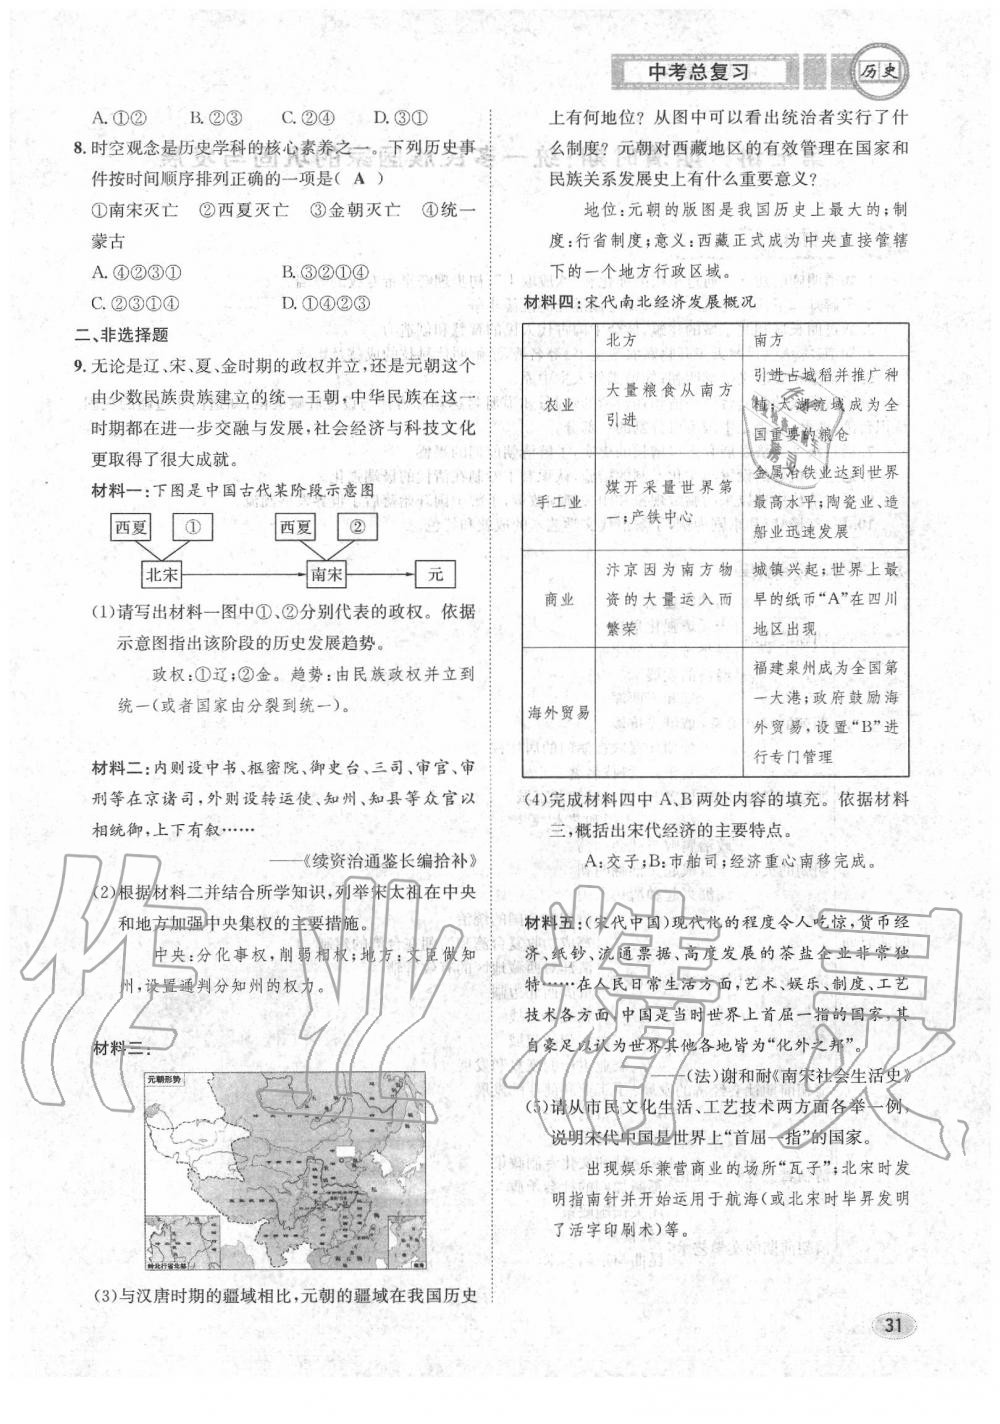 中考总复习
历史
A.①② B.②③ C.②④ D.③①
8.时空观念是历史学科的核心素养之一。下列历史事
件按时间顺序排列正确的一项是( A )
①南宋灭亡 ②西夏灭亡 ③金朝灭亡 ④统一
蒙古
A.④②③① B.①②③④
C.②③④① D.①④②③
二、非选择题
9.无论是辽、宋、夏、金时期的政权并立,还是元朝这个
由少数民族贵族建立的统一王朝,中华民族在这一
时期都在进一步交融与发展,社会经济与科技文化
更取得了很大成就。
材料一:下图是中国古代某阶段示意图
西夏 ① 西夏 ②
北宋 南宋 元
(1)请写出材料一图中①、②分别代表的政权。依据
示意图指出该阶段的历史发展趋势。
政权:①辽;②金。趋势:由民族政权并立到
统一(或者国家由分裂到统一)。
材料二:内则设中书、枢密院、御史台、三司、审官、审
刑等在京诸司,外则设转运使、知州、知县等众官以
相统御,上下有叙……
——《续资治通鉴长编拾补》
(2)根据材料二并结合所学知识,列举宋太祖在中央
和地方加强中央集权的主要措施。
中央:分化事权,削弱相权;地方:文臣做知
州,设置通判分知州的权力。
材料三:
元朝形势
(3)与汉唐时期的疆域相比,元朝的疆域在我国历史
上有何地位?从图中可以看出统治者实行了什
么制度?元朝对西藏地区的有效管理在国家和
民族关系发展史上有什么重要意义?
地位:元朝的版图是我国历史上最大的;制
度:行省制度;意义:西藏正式成为中央直接管辖
下的一个地方行政区域。
材料四:宋代南北经济发展概况
北方 南方
农业 大量粮食从南方引进 引进占城稻并推广种植;太湖流域成为全国重要的粮仓
手工业 煤开采量世界第一;产铁中心 金属冶铁业达到世界最高水平;陶瓷业、造船业迅速发展
商业 汴京因为南方物资的大量运入而繁荣 城镇兴起;世界上最早的纸币“A”在四川地区出现
海外贸易 福建泉州成为全国第一大港;政府鼓励海外贸易,设置“B”进行专门管理
(4)完成材料四中A、B两处内容的填充。依据材料
三,概括出宋代经济的主要特点。
A:交子;B:市舶司;经济重心南移完成。
材料五:(宋代中国)现代化的程度令人吃惊,货币经
济、纸钞、流通票据、高度发展的茶盐企业非常独
特……在人民日常生活方面,艺术、娱乐、制度、工艺
技术各方面,中国是当时世界上首屈一指的国家,其
自豪足以认为世界其他各地皆为“化外之邦”。
——(法)谢和耐《南宋社会生活史》
(5)请从市民文化生活、工艺技术两方面各举一例,
说明宋代中国是世界上“首屈一指”的国家。
出现娱乐兼营商业的场所“瓦子”;北宋时发
明指南针并开始运用于航海(或北宋时毕昇发明
了活字印刷术)等。
31
作业精灵